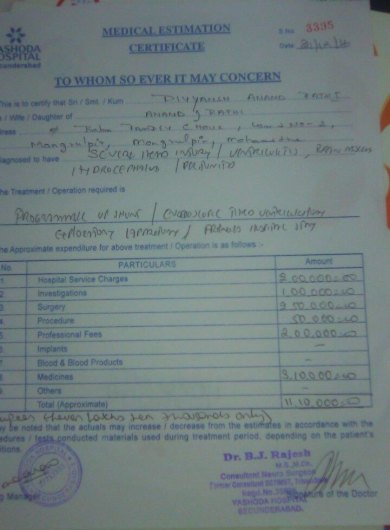 MEDICAL ESTIMATION
CERTIFICATE
S.No. 3335
Date
YASHODA
HOSPITAL
Secunderabad
TO WHOM SO EVER IT MAY CONCERN
This is to certify that Sri / Smt. / Kum DIVYANSH ANAND RATHI
/ Wife / Daughter of ANAND J RATHI
Mangrulpir, Mangrulpir, Maharashtra
Diagnosed to have SEVERE HEAD INJURY / VENTRICULITIS, BRAIN ABSCESS
HYDROCEPHALUS /
The Treatment / Operation required is
PROGRAMMABLE VP SHUNT / ENDOSCOPIC THIRD VENTRICULOSTOMY
EXPLORATORY LAPAROTOMY / HOSPITAL STAY
The Approximate expenditure for above treatment / Operation is as follows :-
No. PARTICULARS Amount
1 Hospital Service Charges 2,00,000=00
2 Investigations 1,00,000=00
3 Surgery 2,50,000=00
4 Procedure 50,000=00
5 Professional Fees 2,00,000=00
6 Implants –
7 Blood & Blood Products –
8 Medicines 3,10,000=00
9 Others –
Total (Approximate) 11,10,000=00
Rupees Eleven Lakhs Ten Thousands only)
may be noted that the actuals may increase / decrease from the estimates in accordance with the
procedures / tests conducted materials used during treatment period, depending on the patient's
conditions.
Dr. B.J. Rajesh
M.S.,M.Ch.
Consultant Neuro Surgeon
YASHODA HOSPITAL
SECUNDERABAD.
Signature of the Doctor
Manager